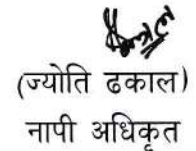 (ज्योति ढकाल)
नापी अधिकृत